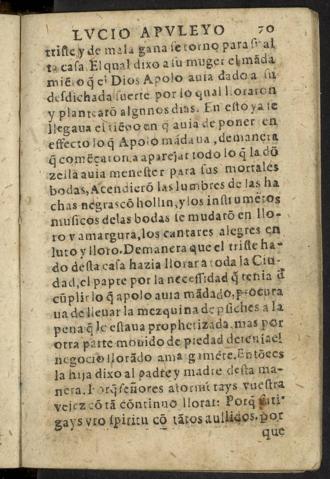 LVCIO APVLEYO 70
triste, y de mala gana se torno para su al
ta casa. El qual dixo a su muger el māda
miēto q̄ el Dios Apolo auia dado a su
desdichada suerte por lo qual lloraron
y plantearō algunos dias. En esto ya se
llegaua el tiēpo en q̄ auia de poner en
effecto lo q̄ Apolo mādaua, demanera
q̄ comēçaron a aparejar todo lo q̄ la dō
zella auia menester para sus mortales
bodas, Acendierō las lumbres de las ha
chas negras cō hollin, y los instrumētos
musicos de las bodas se mudarō en llo-
ro y amargura, los cantares alegres en
luto y lloro. Demanera que el triste ha-
do desta casa hazia llorar a toda la Ciu-
dad, el padre por la necessidad q̄ tenia d̄
cūplir lo q̄ apolo auia mādado, procura
ua de lleuar la mezquina de psiches a la
pena q̄ le estaua prophetizada. mas por
otra parte mouido de piedad detenia el
negocio llorādo amargamēte. Entōces
la hija dixo al padre y madre desta ma-
nera. Porq̄ señores atormētays vuestra
vejez cō tā cōntinuo llorar: Porq̄ fati-
gays vr̄o spiritu cō tātos aullidos, por
que